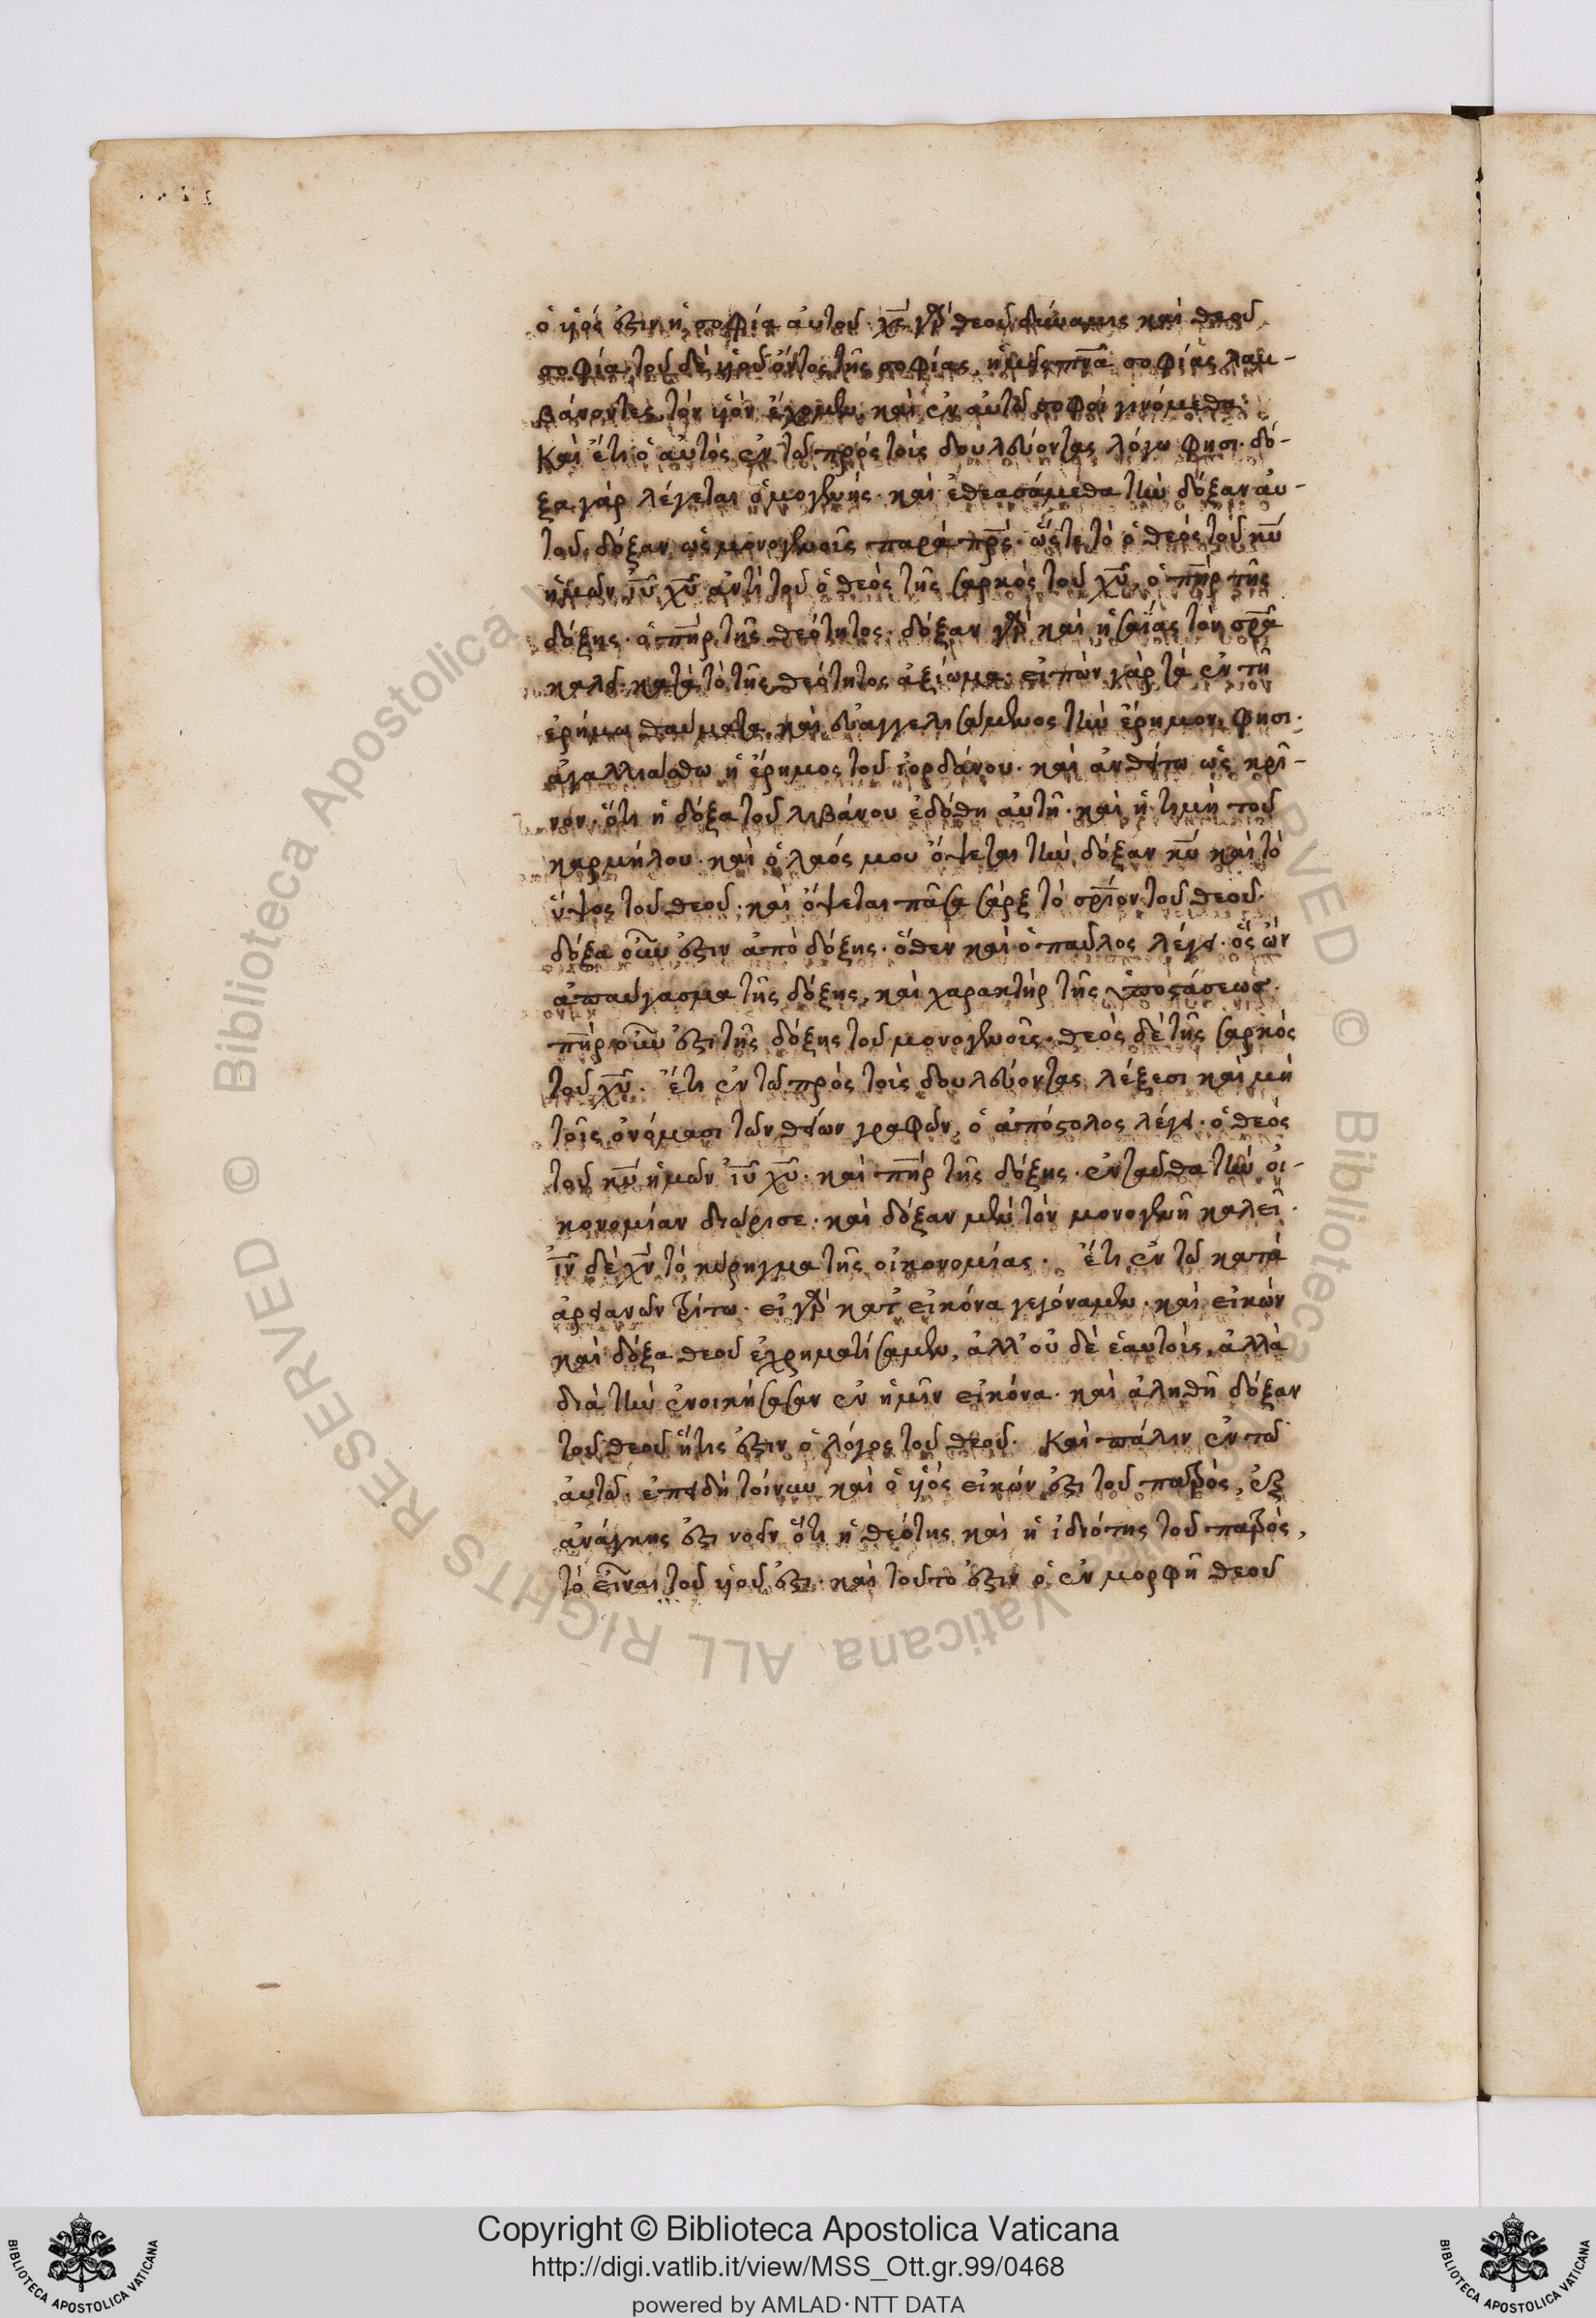 ὁ υἱός ἐστιν ἡ σοφία αὐτοῦ· χς γὰρ θεοῦ δύναμις καὶ θεοῦ
σοφία. τοῦ δὲ υἱοῦ ὄντος τῆς σοφίας, ἡμεῖς πνα σοφίας λαμ-
βάνοντες, τὸν υἱὸν ἔχομεν, καὶ ἐν αὐτῷ σοφοὶ γινόμεθα·
Καὶ ἔτι ὁ αὐτὸς ἐν τῷ πρὸς τοὺς δουλεύοντας λόγω φησι· δό-
ξα γὰρ λέγεται ὁ μογενής· καὶ ἐθεασάμεθα τὴν δόξαν αὐ-
τοῦ, δόξαν ὡς μονογενοῦς παρὰ πρς· ὥστε τὸ ὁ θεὸς τοῦ κυ
ἡμῶν ιυ χυ ἀντὶ τοῦ ὁ θεὸς τῆς σαρκὸς τοῦ χυ, ὁ πηρ τῆς
δόξης· ὁ πηρ τῆς θεότητος· δόξαν γὰρ καὶ ἡσαΐας τὸν σρα
καλεῖ· κατὰ τὸ τῆς θεότητος ἀξίωμα· εἰπὼν γὰρ τὰ ἐν τῇ
ἐρήμω θαύματα, καὶ εὐαγγελισάμενος τὴν ἔρημον, φησι·
ἀγαλλιάσθω ἡ ἔρημος τοῦ ἰορδάνου· καὶ ἀνθείτω ὡς κρί-
νον· ὅτι ἡ δόξα τοῦ λιβάνου ἐδόθη αὐτῇ· καὶ ἡ τιμὴ τοῦ
καρμήλου· καὶ ὁ λαός μου ὄψεται τὴν δόξαν κυ καὶ τὸ
ὕψος τοῦ θεοῦ· καὶ ὄψεται πᾶσα σὰρξ τὸ σριον τοῦ θεοῦ·
δόξα οὖν ἐστιν ἀπὸ δόξης· ὅθεν καὶ ὁ παῦλος λέγει· ὃς ὢν
ἀπαύγασμα τῆς δόξης, καὶ χαρακτὴρ τῆς ὑποστάσεως·
πηρ οὖν ἐστι τῆς δόξης τοῦ μονογενοῦς· θεὸς δὲ τῆς σαρκὸς
τοῦ χυ· ἔτι ἐν τῷ πρὸς τοὺς δουλεύοντας λέξεσι καὶ μὴ
τοῖς ὀνόμασι τῶν θείων γραφῶν, ὁ ἀπόστολος λέγει· ὁ θεὸς
τοῦ κυ ἡμῶν ιυ χυ· καὶ πηρ τῆς δόξης· ἐνταῦθα τὴν οἰ-
κονομίαν διώρισε· καὶ δόξαν μὲν τὸν μονογενῆ καλεῖ·
ιν δὲ χν τὸ κήρυγμα τῆς οἰκονομίας· ἔτι ἐν τῷ κατὰ
ἀρειανῶν τρίτω· εἰ γὰρ κατ' εἰκόνα γεγόναμεν· καὶ εἰκὼν
καὶ δόξα θεοῦ ἐχρηματίσαμεν, ἀλλ' οὐ δὲ ἑαυτοῖς, ἀλλὰ
διὰ τὴν ἐνοικήσασαν ἐν ἡμῖν εἰκόνα· καὶ ἀληθῆ δόξαν
τοῦ θεοῦ ἥτις ἐστιν ὁ λόγος τοῦ θεοῦ· Καὶ πάλιν ἐν τῷ
αὐτῷ· ἐπειδὴ τοίνυν καὶ ὁ υἱὸς εἰκών ἐστι τοῦ πατρὸς, ἐξ
ἀνάγκης ἐστι νοεῖν ὅτι ἡ θεότης καὶ ἡ ἰδιότης τοῦ πατρὸς,
τὸ εἶναι τοῦ υἱοῦ ἐστι· καὶ τοῦτο ἐστιν ὁ ἐν μορφῇ θεοῦ
Copyright © Biblioteca Apostolica Vaticana
http://digi.vatlib.it/view/MSS_Ott.gr.99/0468
powered by AMLAD·NTT DATA
BIBLIOTECA APOSTOLICA VATICANA
BIBLIOTECA APOSTOLICA VATICANA
© Biblioteca Apostolica Vaticana ALL RIGHTS RESERVED